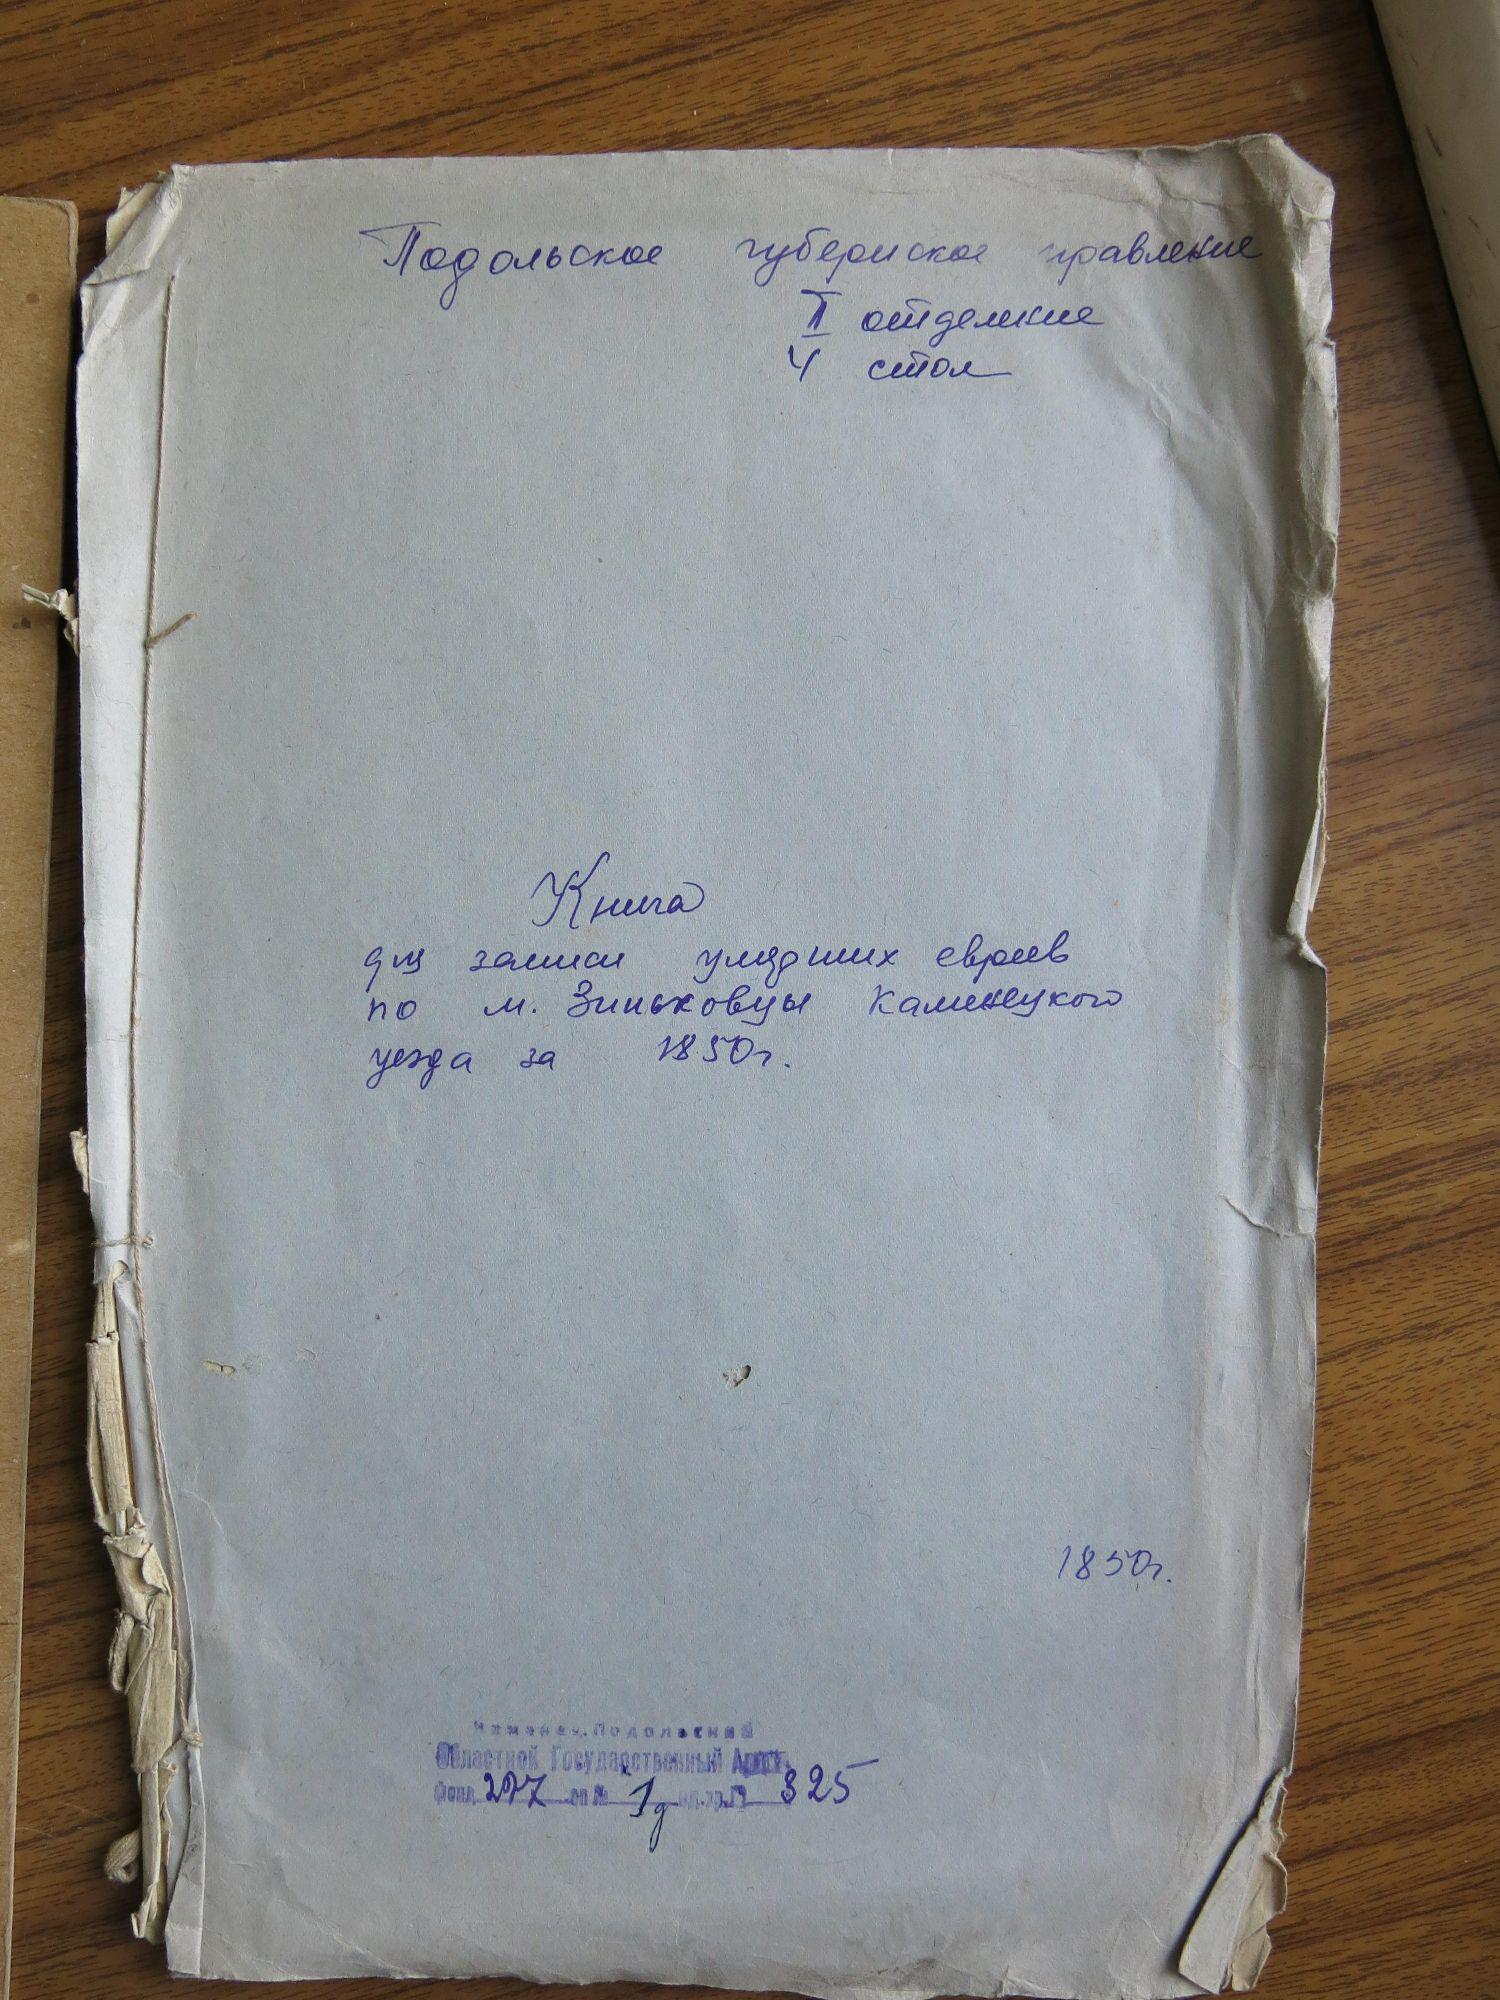 Подольское губернское правление
II отделение
4 стол
Книга
для записи умерших евреев
по м. Зиньковцы Каменецкого
уезда за 1850г.
1850г.
Каменец.Подольский
Областной Государственный Архив
Фонд 277 оп № 1д ед.хр.№ 325